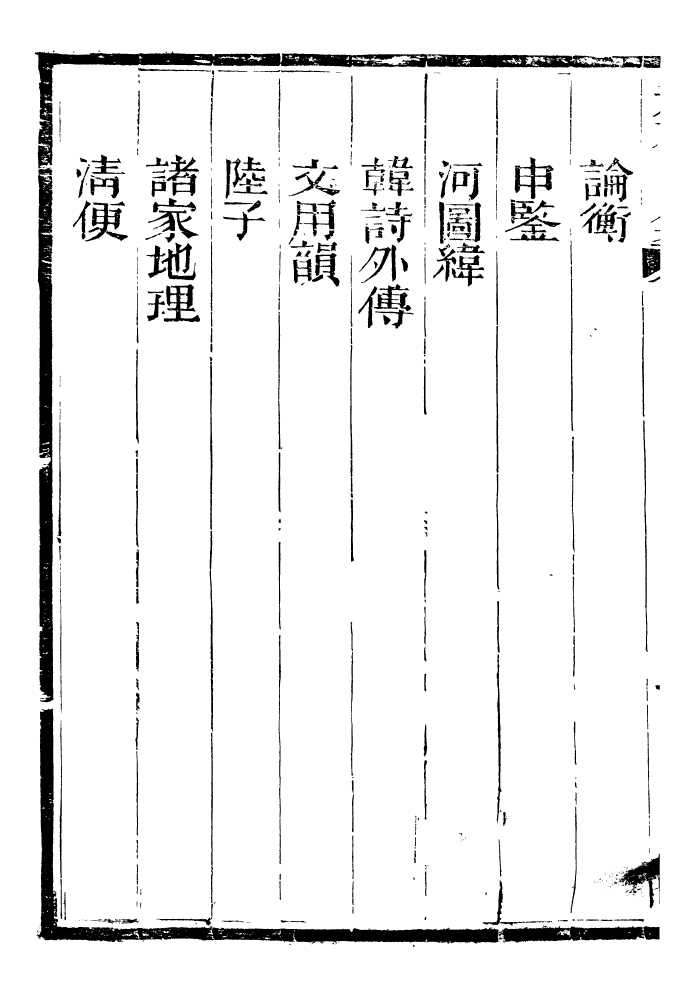 論衡
申鑒
河圖緯
韓詩外傳
文用韻
陸子
諸家地理
清便